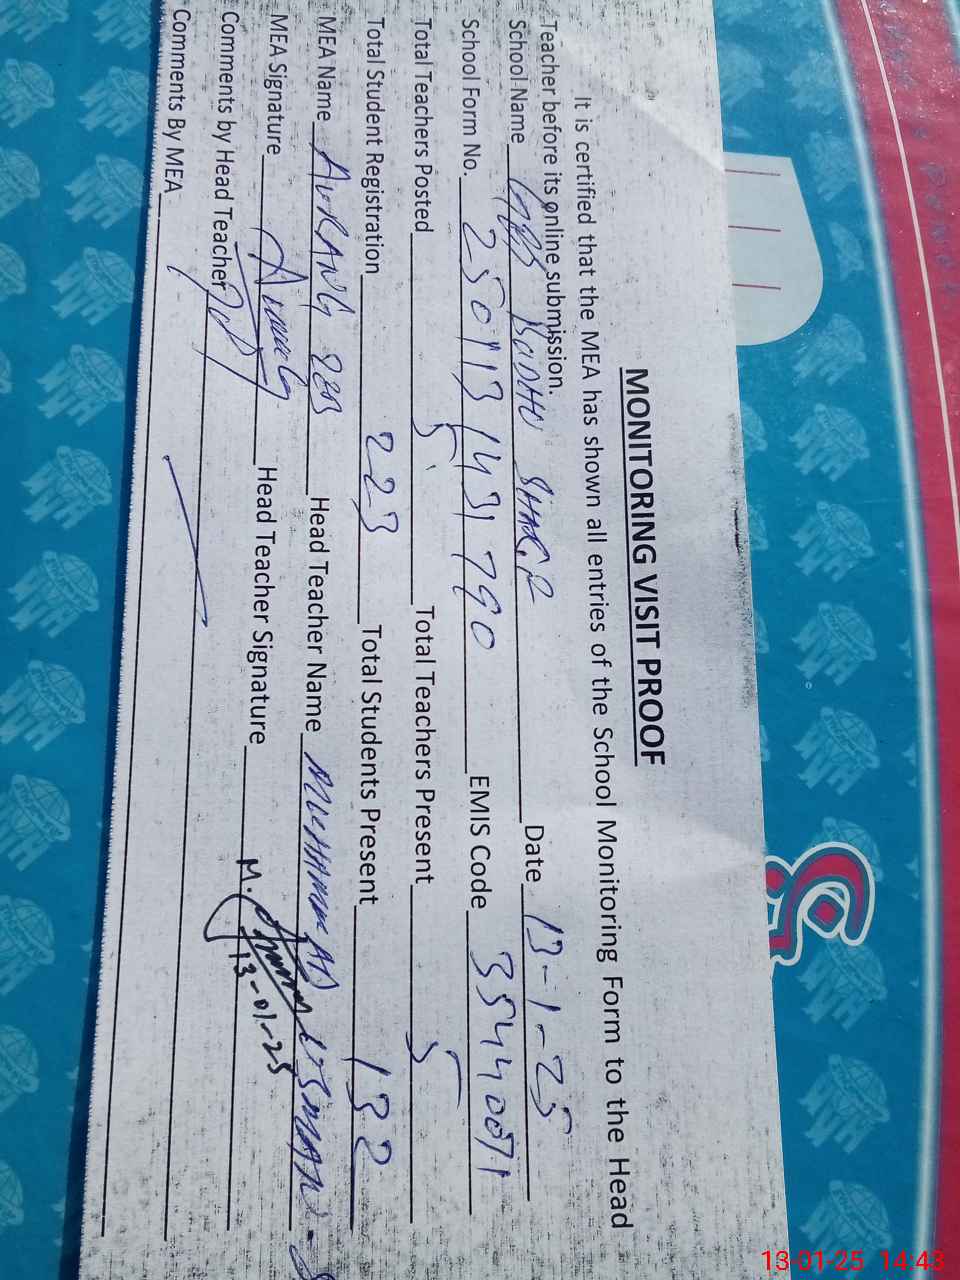 MONITORING VISIT PROOF
It is certified that the MEA has shown all entries of the School Monitoring Form to the Head
Teacher before its online submission.
School Name GPS BODHU SHAR.R Date 13-1-25
School Form No. 250113 1431790 EMIS Code 35440071
Total Teachers Posted 5 Total Teachers Present 5
Total Student Registration 223 Total Students Present 132
MEA Name AURANG ZEB Head Teacher Name MUHAMMAD USMAN
MEA Signature Head Teacher Signature 13-01-25
Comments by Head Teacher
Comments By MEA
13-01-25 14:43